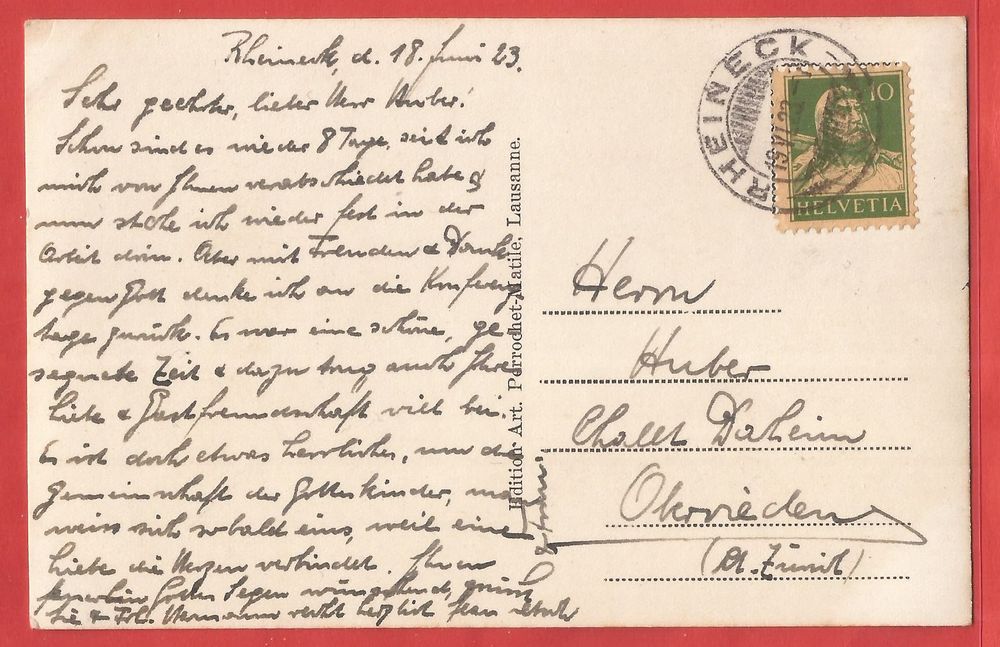 Rheineck, d. 18. Juni 23.
Sehr geehrter, lieber Herr Huber!
Schon sind es wieder 8 Tage, seit ich
mich von Ihnen verabschiedet habe &
nun stehe ich wieder fest in der
Arbeit drin. Aber mit Freuden & Dank
gegen Gott denke ich an die Konferenz
tage zurück. Es war eine schöne, ge
segnete Zeit & dazu trug auch Ihre
Liebe & Gastfreundschaft viel bei.
Es ist doch etwas herrliches, um die
Gemeinschaft der Gotteskinder, man
weiss sich sobald eins, weil eine
Liebe die Herzen verbindet. Ihnen
fernerhin Gottes Segen wünschend, grüsst
Sie & Frl. Hermann recht herzlich
& Frau
Edition Art. Perrochet-Matile, Lausanne.
RHEINECK
10
HELVETIA
Herrn
Huber
Chalet Daheim
Oberrieden
(Kt. Zürich)